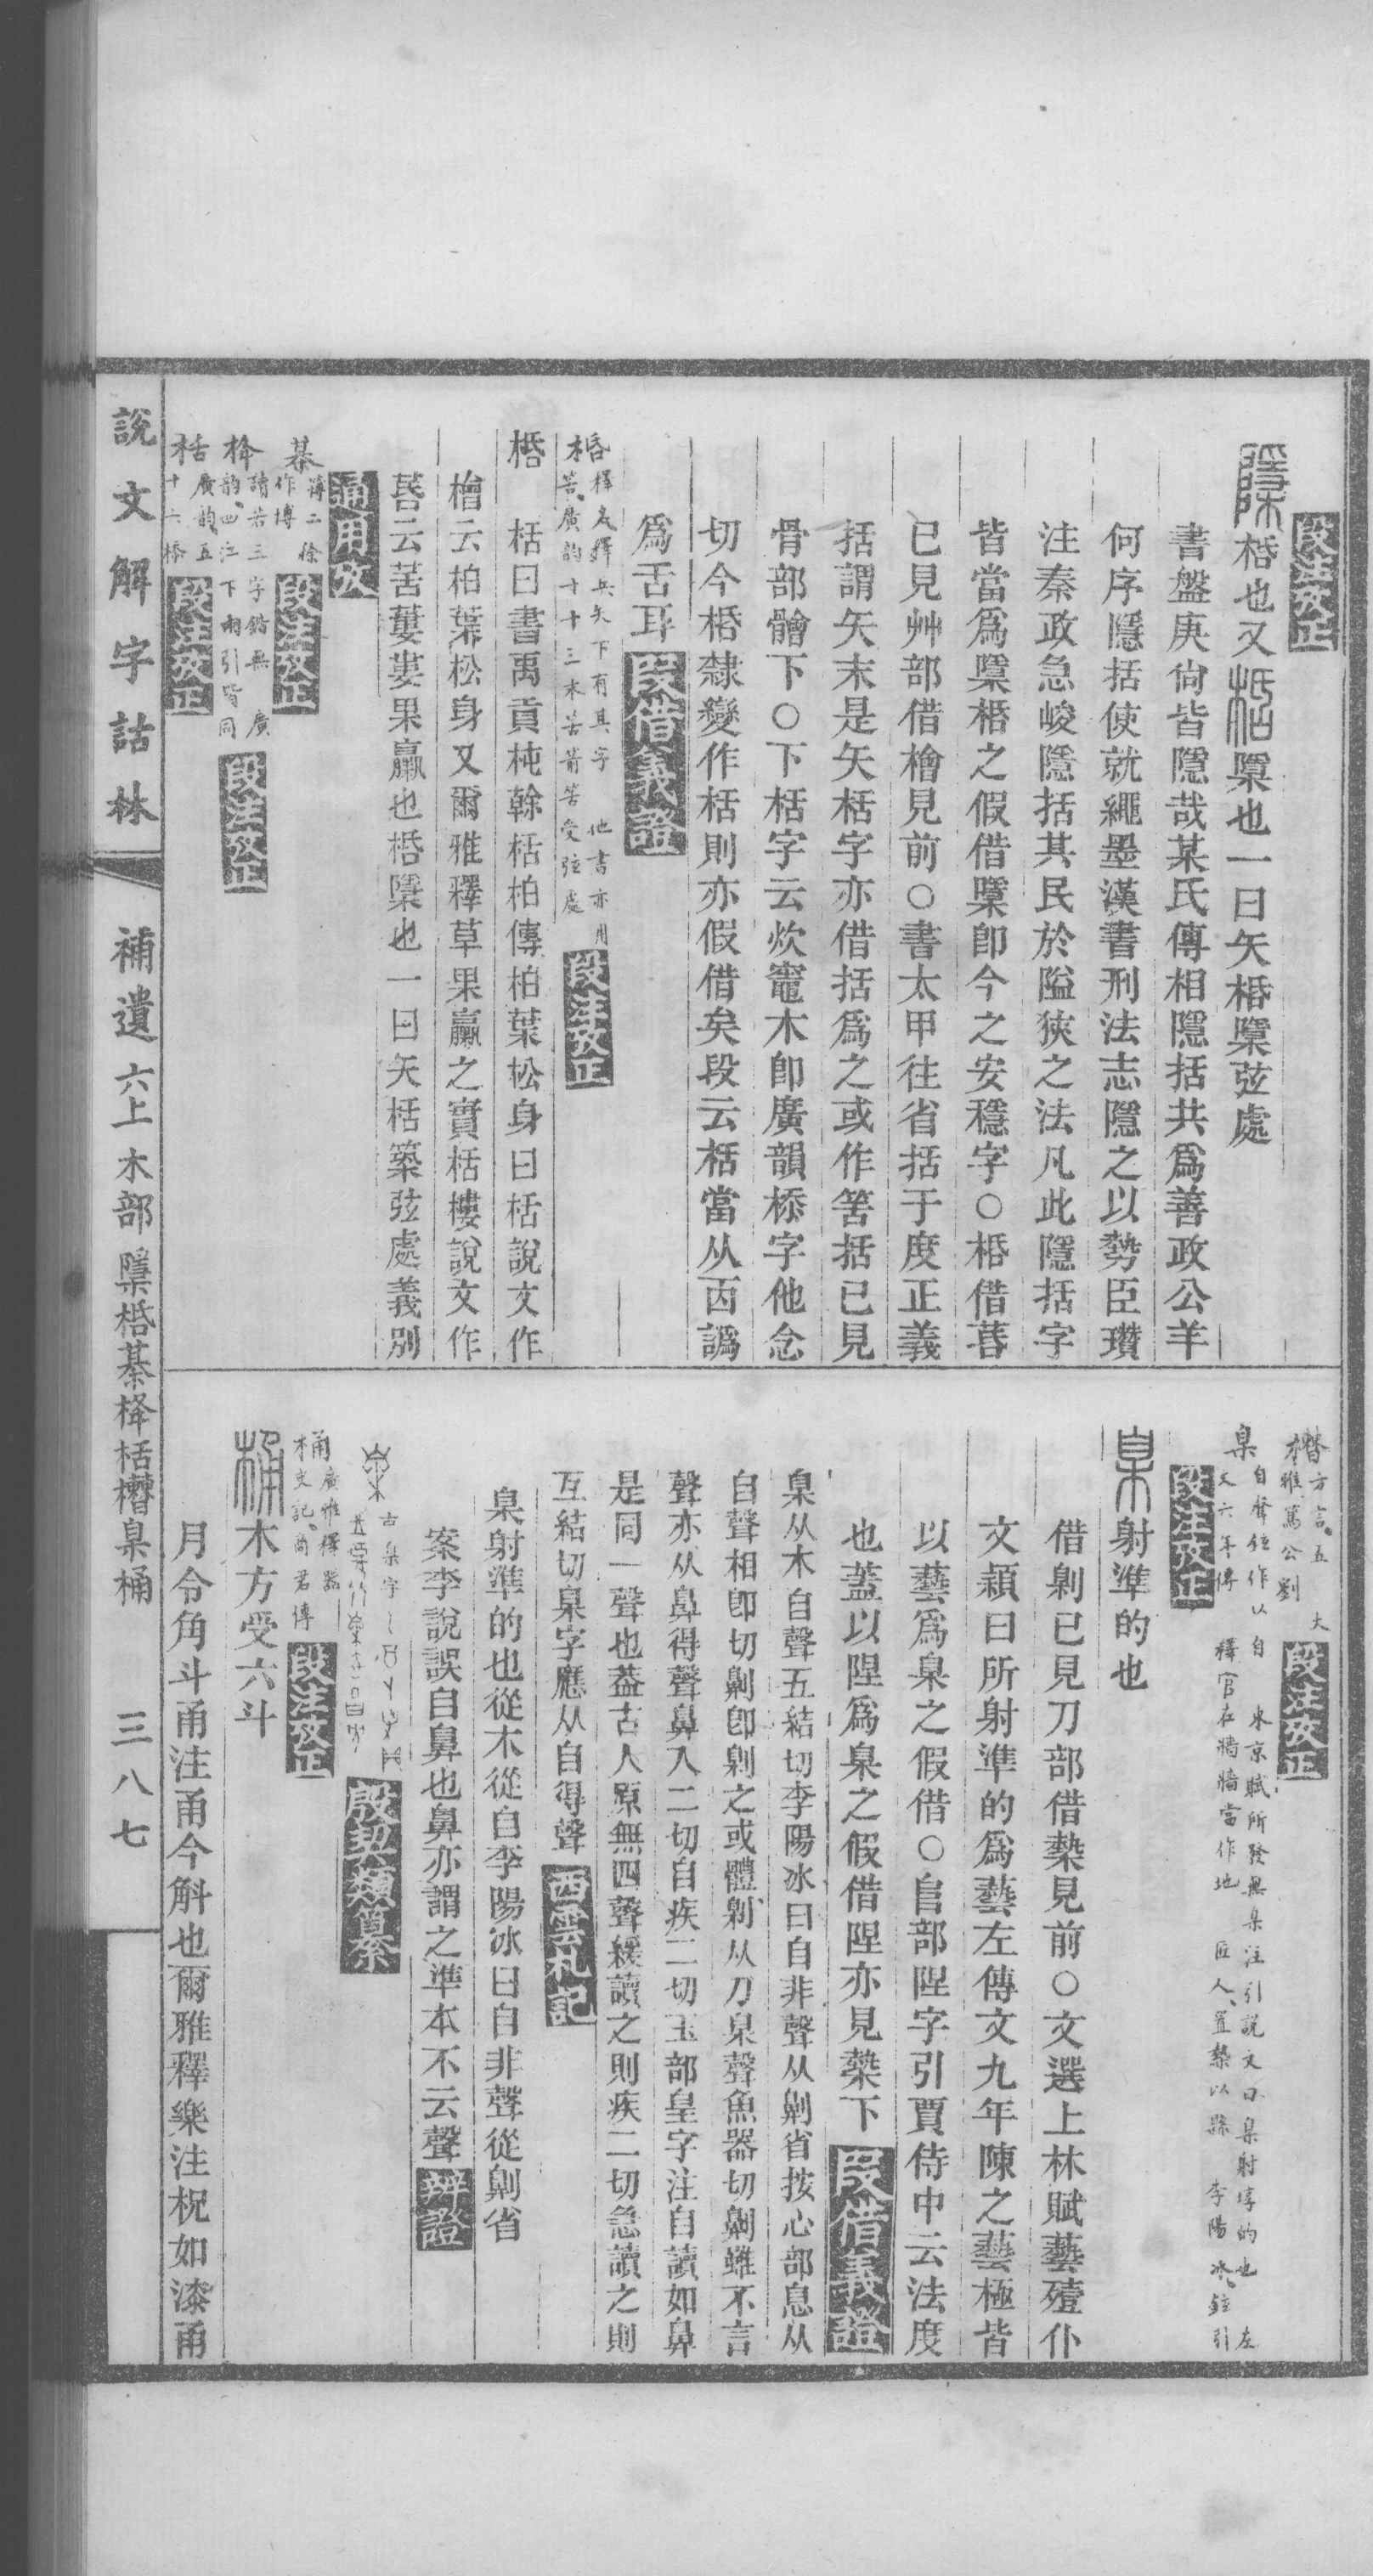 段注攷正
櫽桰也又桰檃也一曰矢桰檃弦處
書盤庚尙皆隱哉某氏傳相隱括共爲善政公羊
何序隱括使就繩墨漢書刑法志隱之以勢臣瓚
注秦政急峻隱括其民於隘狹之法凡此隱括字
皆當爲檃桰之假借檃卽今之安穩字○桰借葀
已見艸部借檜見前○書太甲往省括于度正義
括謂矢末是矢栝字亦借括爲之或作筈括已見
骨部䯤下○下栝字云炊竈木卽廣韻㮇字他念
切今桰隸變作栝則亦假借矣段云栝當从㐁譌
爲舌耳 段借義證
桰 釋文釋兵矢下有其字 他書亦用
苦廣韵十十三末苦箐筈受弦處 段注攷正
桰 栝曰書禹貢杶榦栝柏傳柏葉松身曰栝說文作
檜云柏葉松身又爾雅釋草果臝之實栝樓說文作
葀云苦蔞婁果臝也桰檃也一曰矢栝築弦處義別
通用攷
棊 簙二徐作博 段注攷正
栙 讀若三字鍇無 廣韵四江下兩引皆同 段注攷正
栝 廣韵五十六㮇 段注攷正
方言五 大雅篤公劉 段注攷正
臬 自聲鉉作以自 東京賦所發無臬注引說文曰臬射埻的也 左
文六年傳 釋宮在牆牆當作地 匠人置槷以縣 李陽冰鉉引
段注攷正
臬射準的也
借劓已見刀部借槷見前○文選上林賦藝殪仆
文穎曰所射準的爲藝左傳文九年陳之藝極皆
以藝爲臬之假借○𨸏部隉字引賈侍中云法度
也蓋以隉爲臬之假借隉亦見槷下 段借義證
臬从木自聲五結切李陽冰曰自非聲从劓省按心部息从
自聲相卽切劓卽剠之或體劓从刀臬聲魚器切劓雖不言
聲亦从鼻得聲鼻入二切自疾二切玉部皇字注自讀如鼻
是同一聲也蓋古人原無四聲緩讀之則疾二切急讀之則
互結切臬字應从自得聲 西雲札記
臬射準的也從木從自李陽冰曰自非聲從劓省
案李說誤自鼻也鼻亦謂之準本不云聲 辨證
古臬字 殷契類纂
桶 廣雅釋器
史記商君傳 段注攷正
桶木方受六斗
月令角斗甬注甬今斛也爾雅釋樂注柷如漆甬
說文解字詁林 補遺六上 木部 檃桰棊栙栝櫭臬桶 三八七